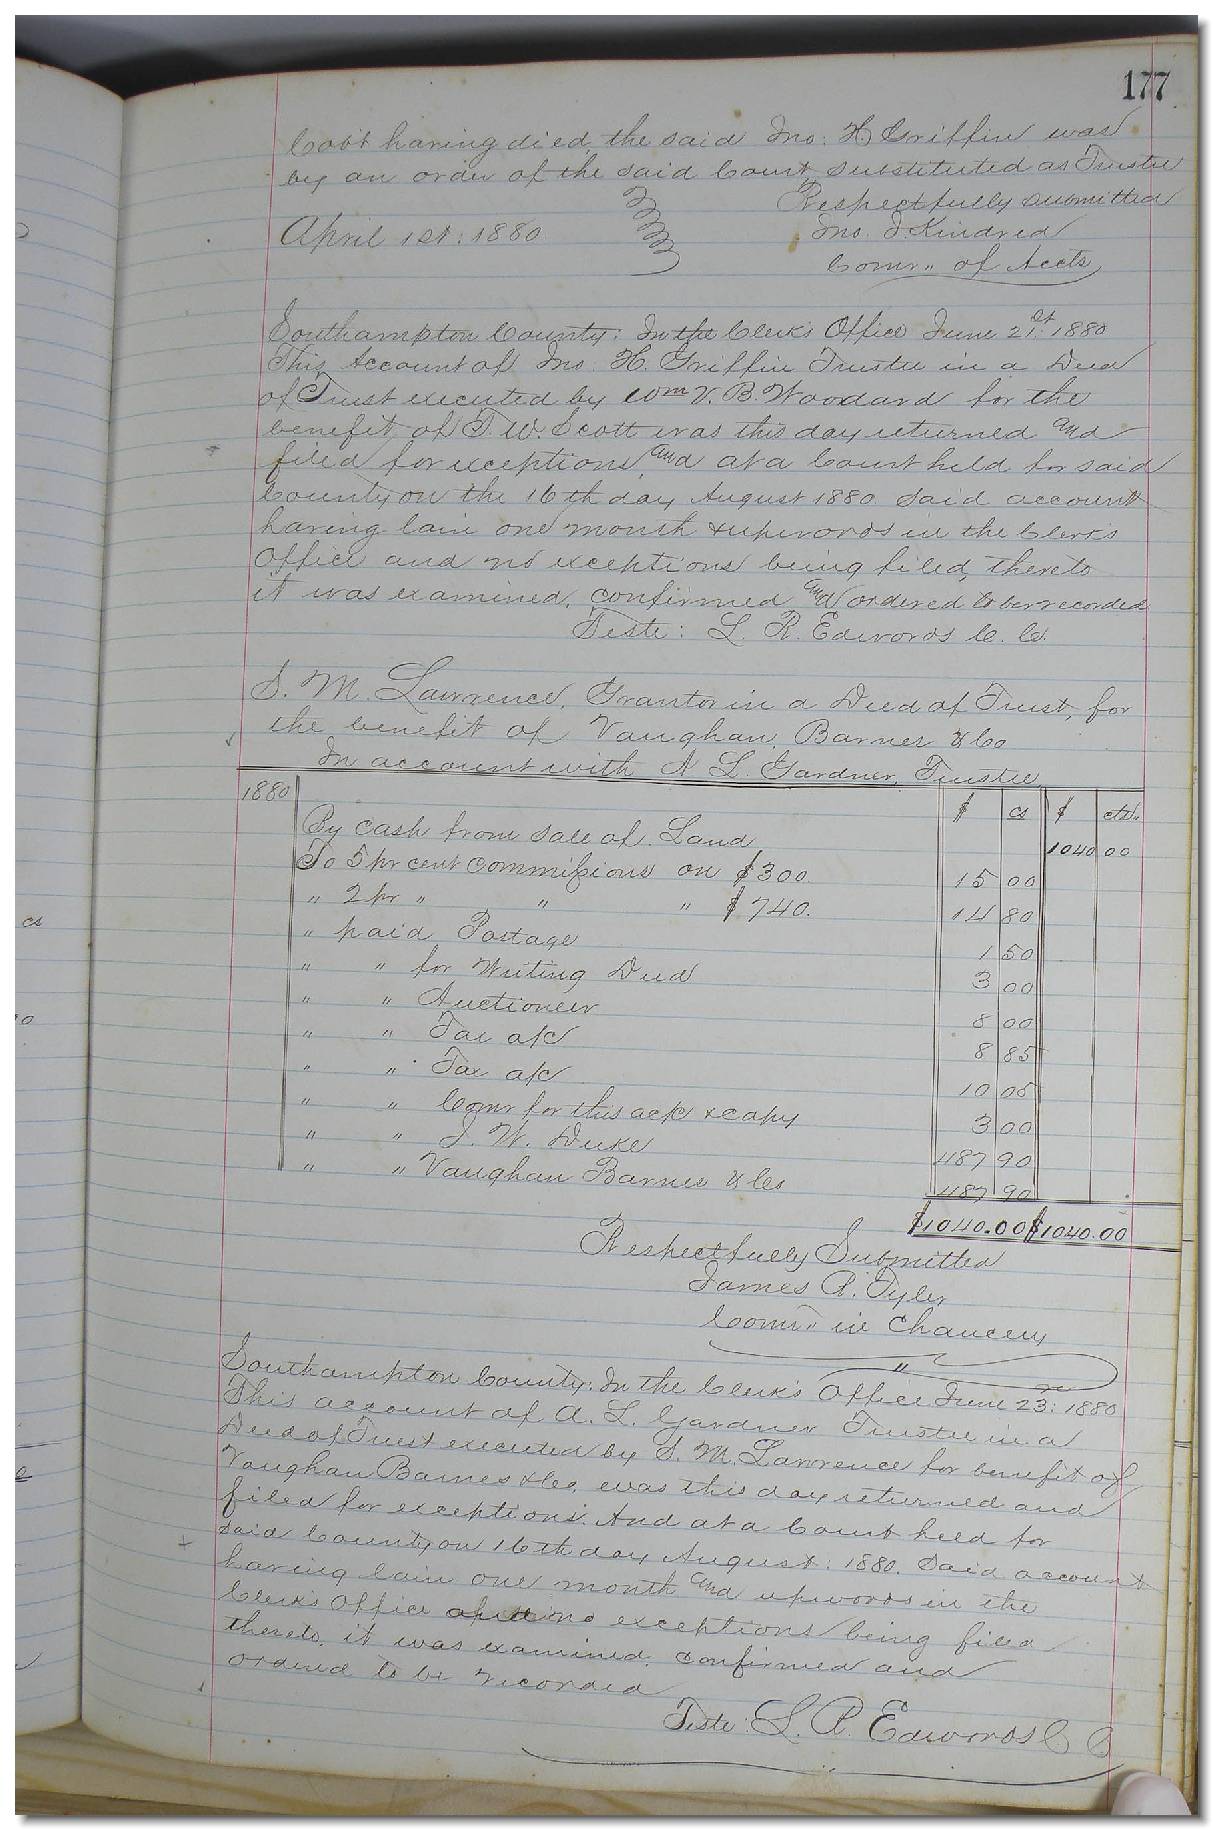 177
Cobb having died, the said Jno: H. Griffin was
by an order of the said Court, substituted as Trustee
Respectfully submitted
April 1st: 1880
Jno. J. Kindred
Comr. of Accts
Southampton County: In the Clerk's Office June 21st. 1880
This Account of Jno. H. Griffin Trustee in a Deed
of Trust executed by Wm V. B. Woodard for the
benefit of T. W. Scott was this day returned and
filed for exceptions, and at a Court held for said
County on the 16th day August 1880 said account
having lain one month & upwords in the Clerks
Office and no exceptions being filed, thereto
it was examined, confirmed and ordered to be recorded
Teste: L. R. Edwords C. C.
S. M. Lawrence, Grantor in a Deed of Trust, for
the benefit of Vaughan, Barnes & Co
In account with A L. Gardner, Trustee
1880 $ cs $ cts
By cash from sale of Land 1040 00
To 5 pr cent commissions on $300 15 00
" 2 pr " " " $740. 14 80
" paid Postage 1 50
" " for Writing Deed 3 00
" " Auctioneer 8 00
" " Tax a/c 8 85
" " Tax a/c 10 05
" " Comr for this a/c & copy 3 00
" " J. W. Duke 487 90
" " Vaughan Barnes & Co 487 90
$1040.00 $1040.00
Respectfully Submitted
James R. Tyler
Comr. in Chancery
Southampton County: In the Clerk's Office June 23: 1880
This account of A. L. Gardner Trustee in a
Deed of Trust executed by S. M. Lawrence for benefit of
Vaughan Barnes & Co. was this day returned and
filed for exceptions. And at a Court held for
said County on 16th day August: 1880. said account
having lain one month and upwords in the
Clerk's Office no exceptions being filed
thereto, it was examined, confirmed and
ordered to be recorded
Teste: L. R. Edwords C C
cs